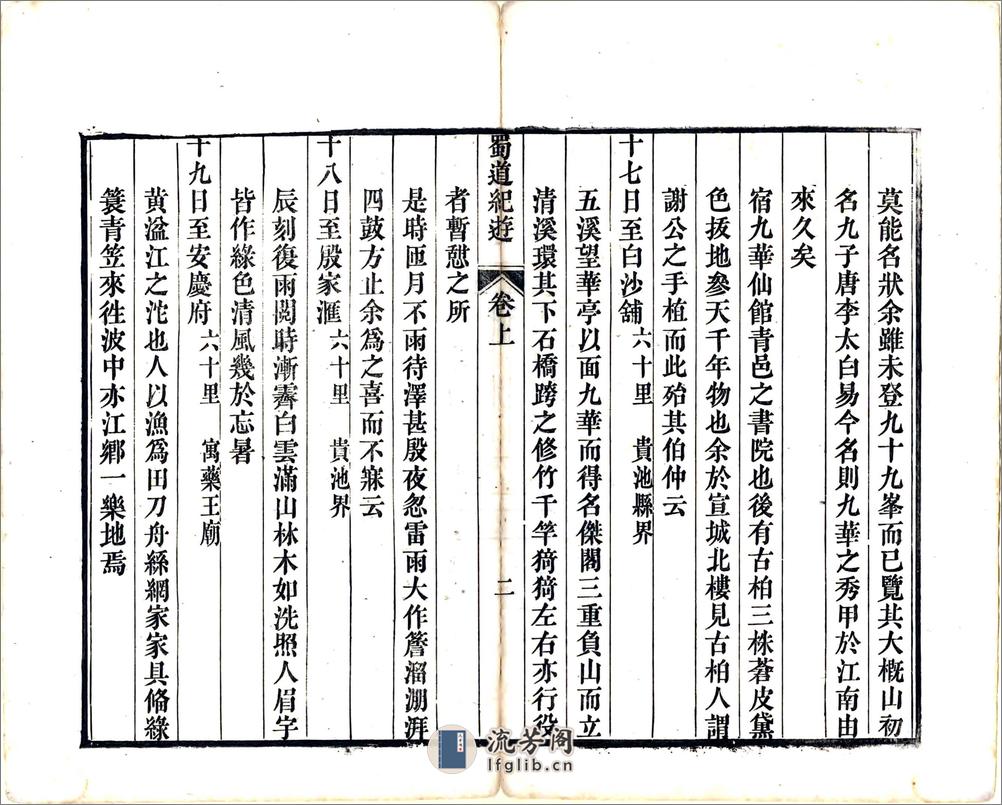 莫能名狀余雖未登九十九峯而已覽其大槪山初
名九子唐李太白易今名則九華之秀甲於江南由
來久矣
宿九華仙館青邑之書院也後有古柏三株蒼皮黛
色拔地參天千年物也余於宣城北樓見古柏人謂
謝公之手植而此殆其伯仲云
十七日至白沙舖 六十里 貴池縣界
五溪望華亭以面九華而得名傑閣三重負山而立
清溪環其下石橋跨之修竹千竿猗猗左右亦行役
蜀道紀遊 卷上 二
者暫憇之所
是時匝月不雨待澤甚殷夜忽雷雨大作簷溜淜湃
四鼓方止余爲之喜而不寐云
十八日至殷家滙 六十里 貴池界
辰刻復雨閲時漸霽白雲滿山林木如洗照人眉宇
皆作綠色清風幾於忘暑
十九日至安慶府 六十里 寓藥王廟
黃湓江之沱也人以漁爲田刀舟絲網家家具俻綠
簔青笠來徃波中亦江鄉一樂地焉
流芳阁
lfglib.cn